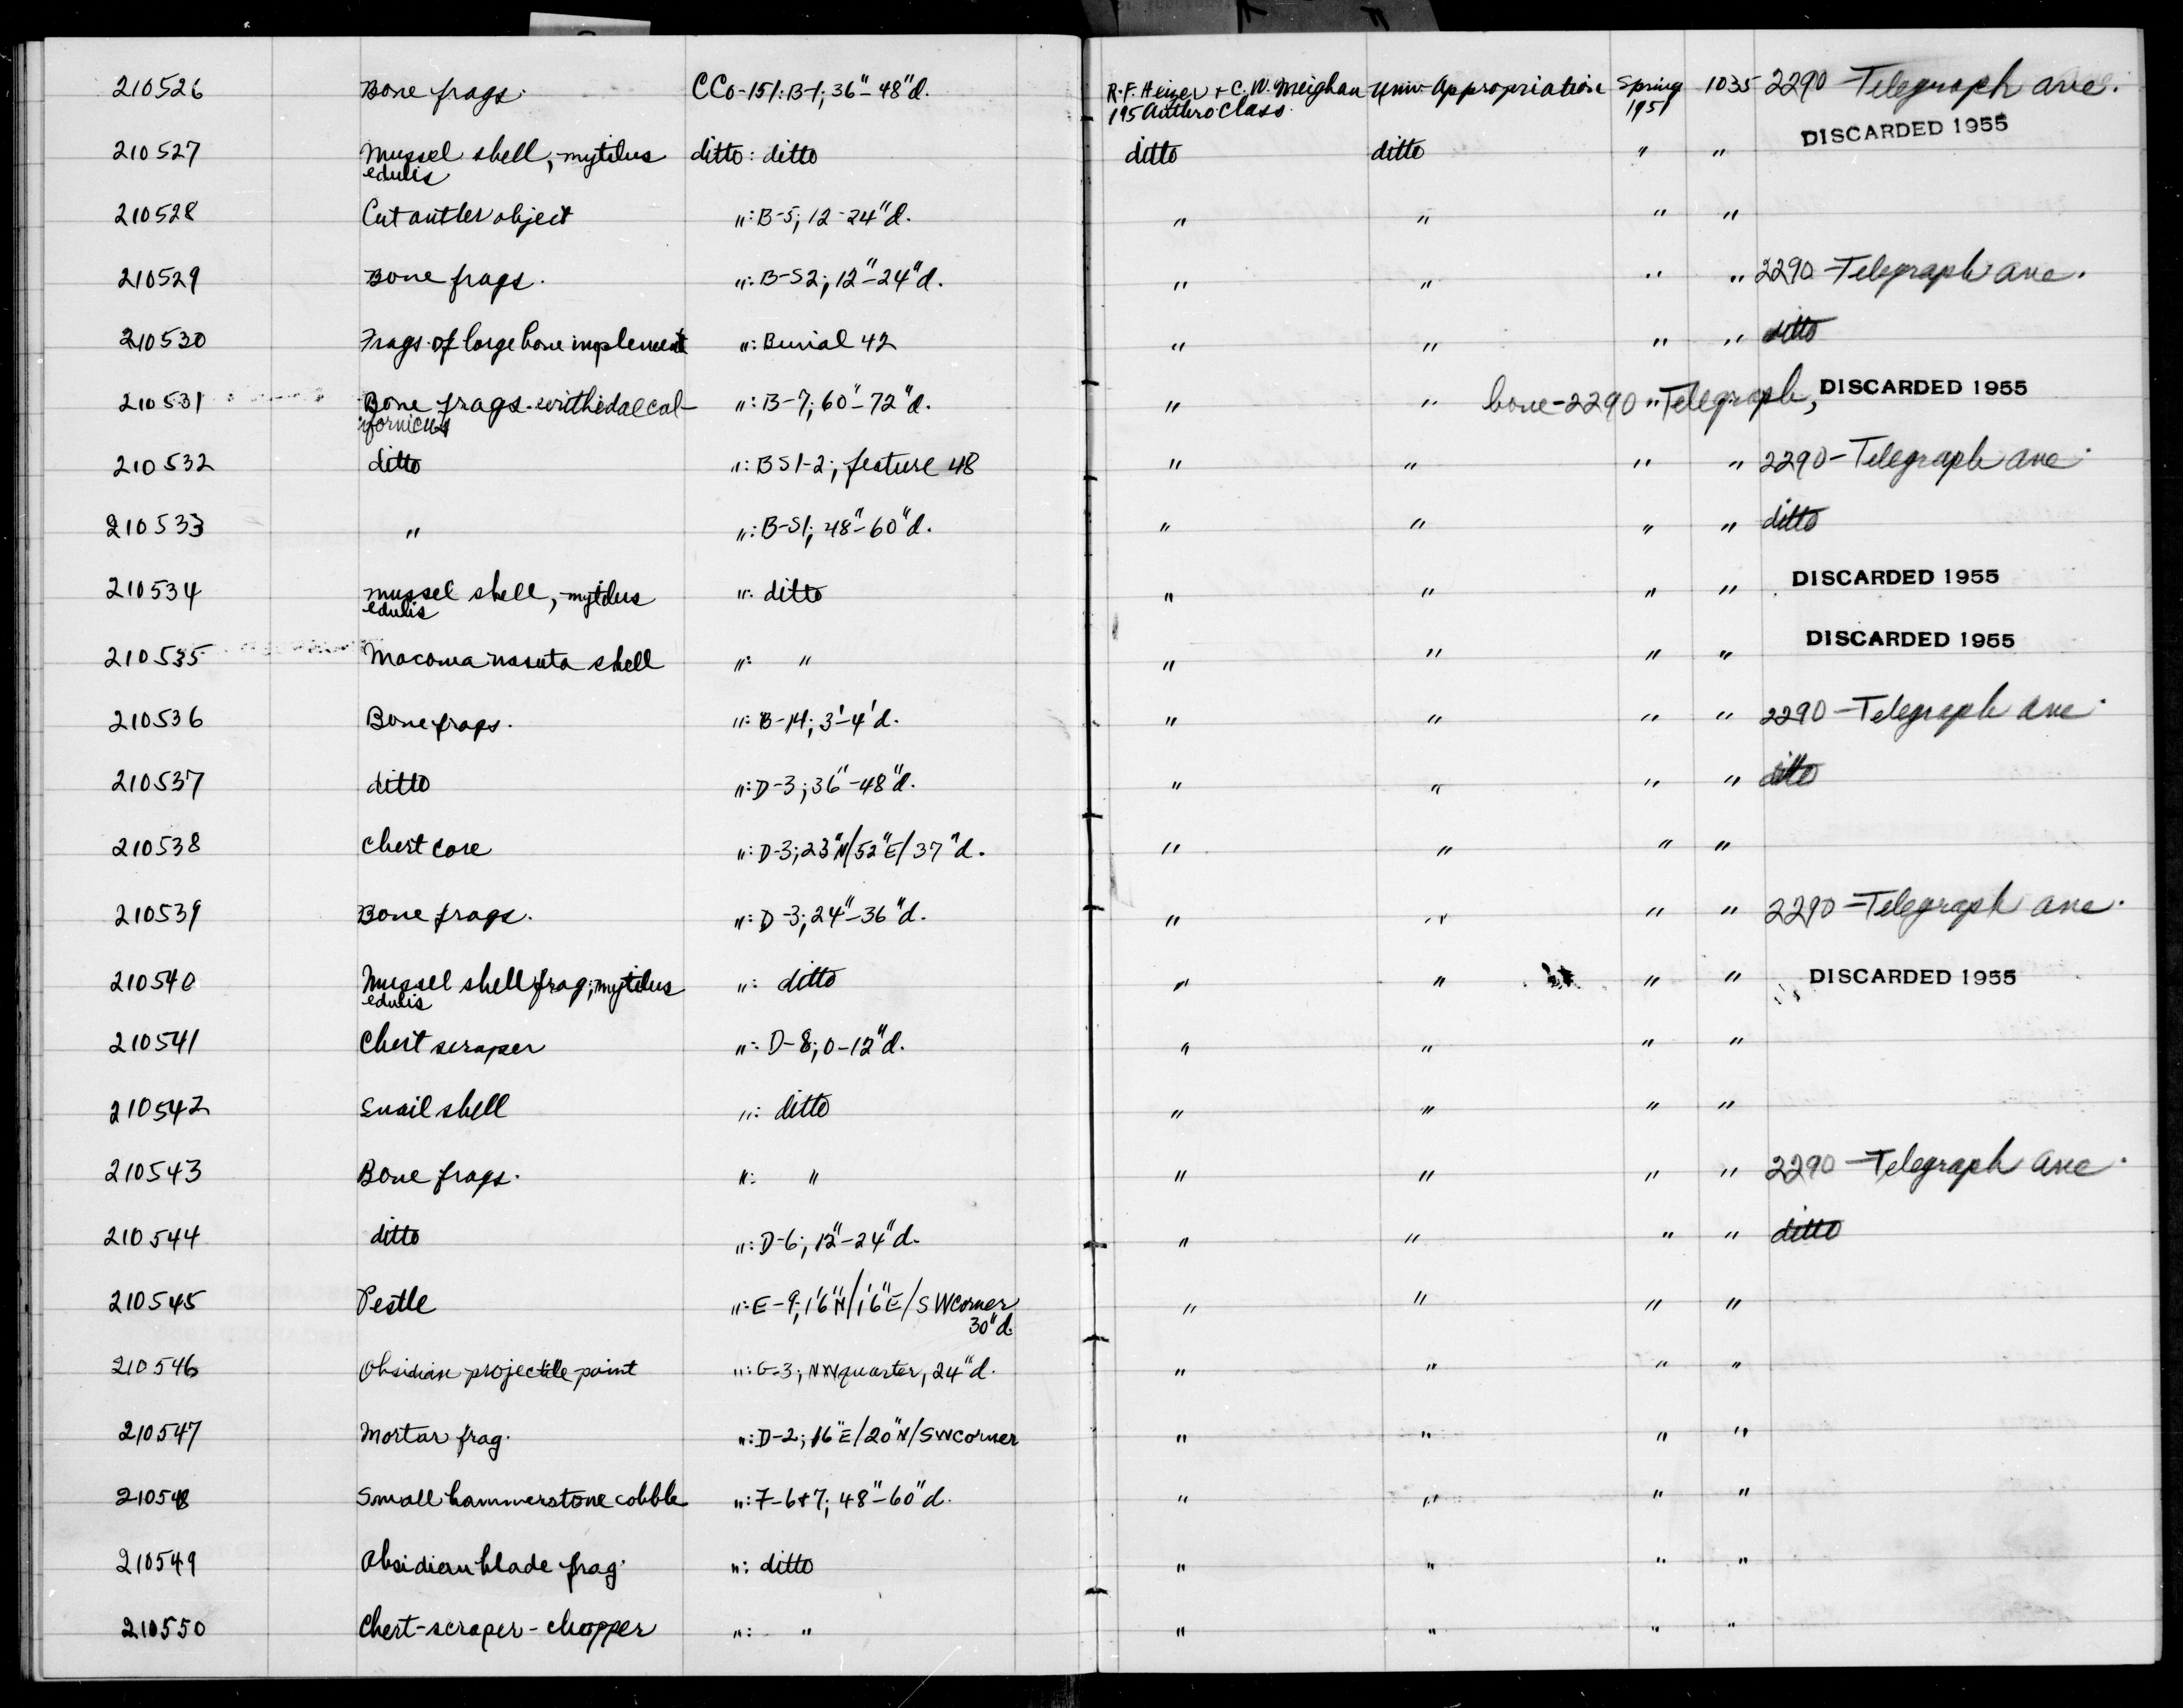 210526 Bone frags. CCo-151: B-1; 36"-48"d. R.F. Heizer + C.W. Meighan Univ. Appropriation Spring 1035 2290 Telegraph ave.
195 Anthro Class 1951
DISCARDED 1955
210527 Mussel shell, mytilus ditto: ditto ditto ditto " "
edulis
210528 Cut antler object ": B-5; 12-24"d. " " " "
210529 Bone frags. ": B-S2; 12"-24"d. " " " " 2290 Telegraph ave.
210530 Frags. of large bone implement ": Burial 42 " " " " ditto
210531 Bone frags. ": B-7; 60"-72"d. " " bone-2290 " Telegraph, DISCARDED 1955
ifornicus
210532 ditto ": BS1-2; feature 48 " " " " 2290-Telegraph ave.
210533 " ": B-S1; 48"-60"d. " " " " ditto
210534 mussel shell, mytilus ": ditto " " " " DISCARDED 1955
edulis
210535 Macoma nasuta shell ": " " " " " DISCARDED 1955
210536 Bone frags. ": B-14; 3'-4'd. " " " " 2290-Telegraph ave.
210537 ditto ": D-3; 36"-48"d. " " " " ditto
210538 Chert core ": D-3; 23"N/52"E/37"d. " " " "
210539 Bone frags. ": D-3; 24"-36"d. " " " " 2290-Telegraph ave.
210540 Mussel shell frag; mytilus ": ditto " " " " DISCARDED 1955
edulis
210541 Chert scraper ": D-8; 0-12"d. " " " "
210542 Snail shell ": ditto " " " "
210543 Bone frags. ": " " " " " 2290-Telegraph ave.
210544 ditto ": D-6; 12"-24"d. " " " " ditto
210545 Pestle ": E-9; 1'6"N/1'6"E/SW corner " " " "
30"d.
210546 Obsidian projectile point ": G-3; NW quarter, 24"d. " " " "
210547 Mortar frag. ": D-2; 16"E/20"N/SW corner " " " "
210548 Small hammerstone cobble ": F-6+7; 48"-60"d. " " " "
210549 Obsidian blade frag. ": ditto " " " "
210550 Chert-scraper-chopper ": " " " " "